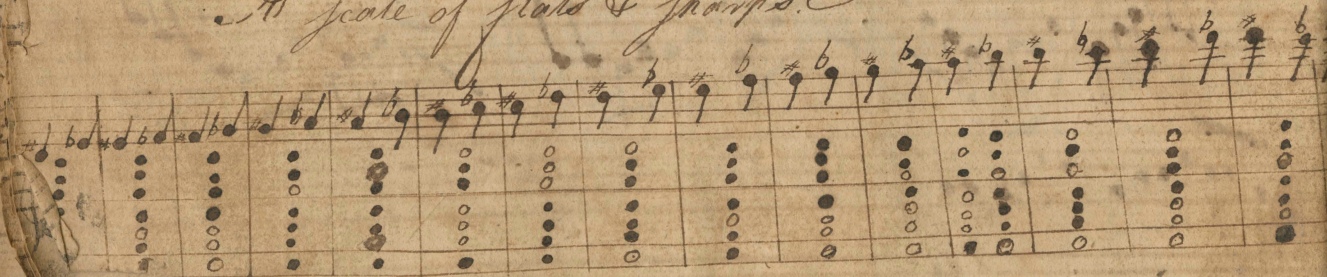 A scale of flats & sharps.